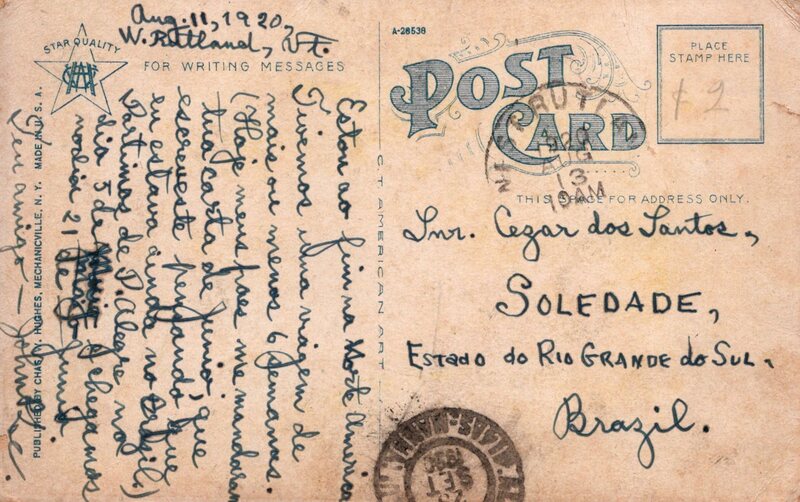 Aug. 11, 1920,
W. Rutland, Vt.
STAR QUALITY
FOR WRITING MESSAGES
Estou ao fim na Norte America
Tivemos uma viagem de
mais ou menos 6 semanas
(Hoje meus paes me mandaram
tua carta de Junio, que
escreveste pensando que
eu estava ainda no Brazil)
Partimos de P. Alegre nos
dia 5 de e chegamos
21 de
Teu amigo —
PUBLISHED BY CHAS. W. HUGHES, MECHANICVILLE, N. Y. MADE IN U. S. A.
CT AMERICAN ART
A-28538
POST CARD
PLACE
STAMP HERE
12
1920
AUG
13
10 AM
THIS SPACE FOR ADDRESS ONLY.
Snr. Cezar dos Santos,
SOLEDADE,
Estado do Rio Grande do Sul.
Brazil.
SET